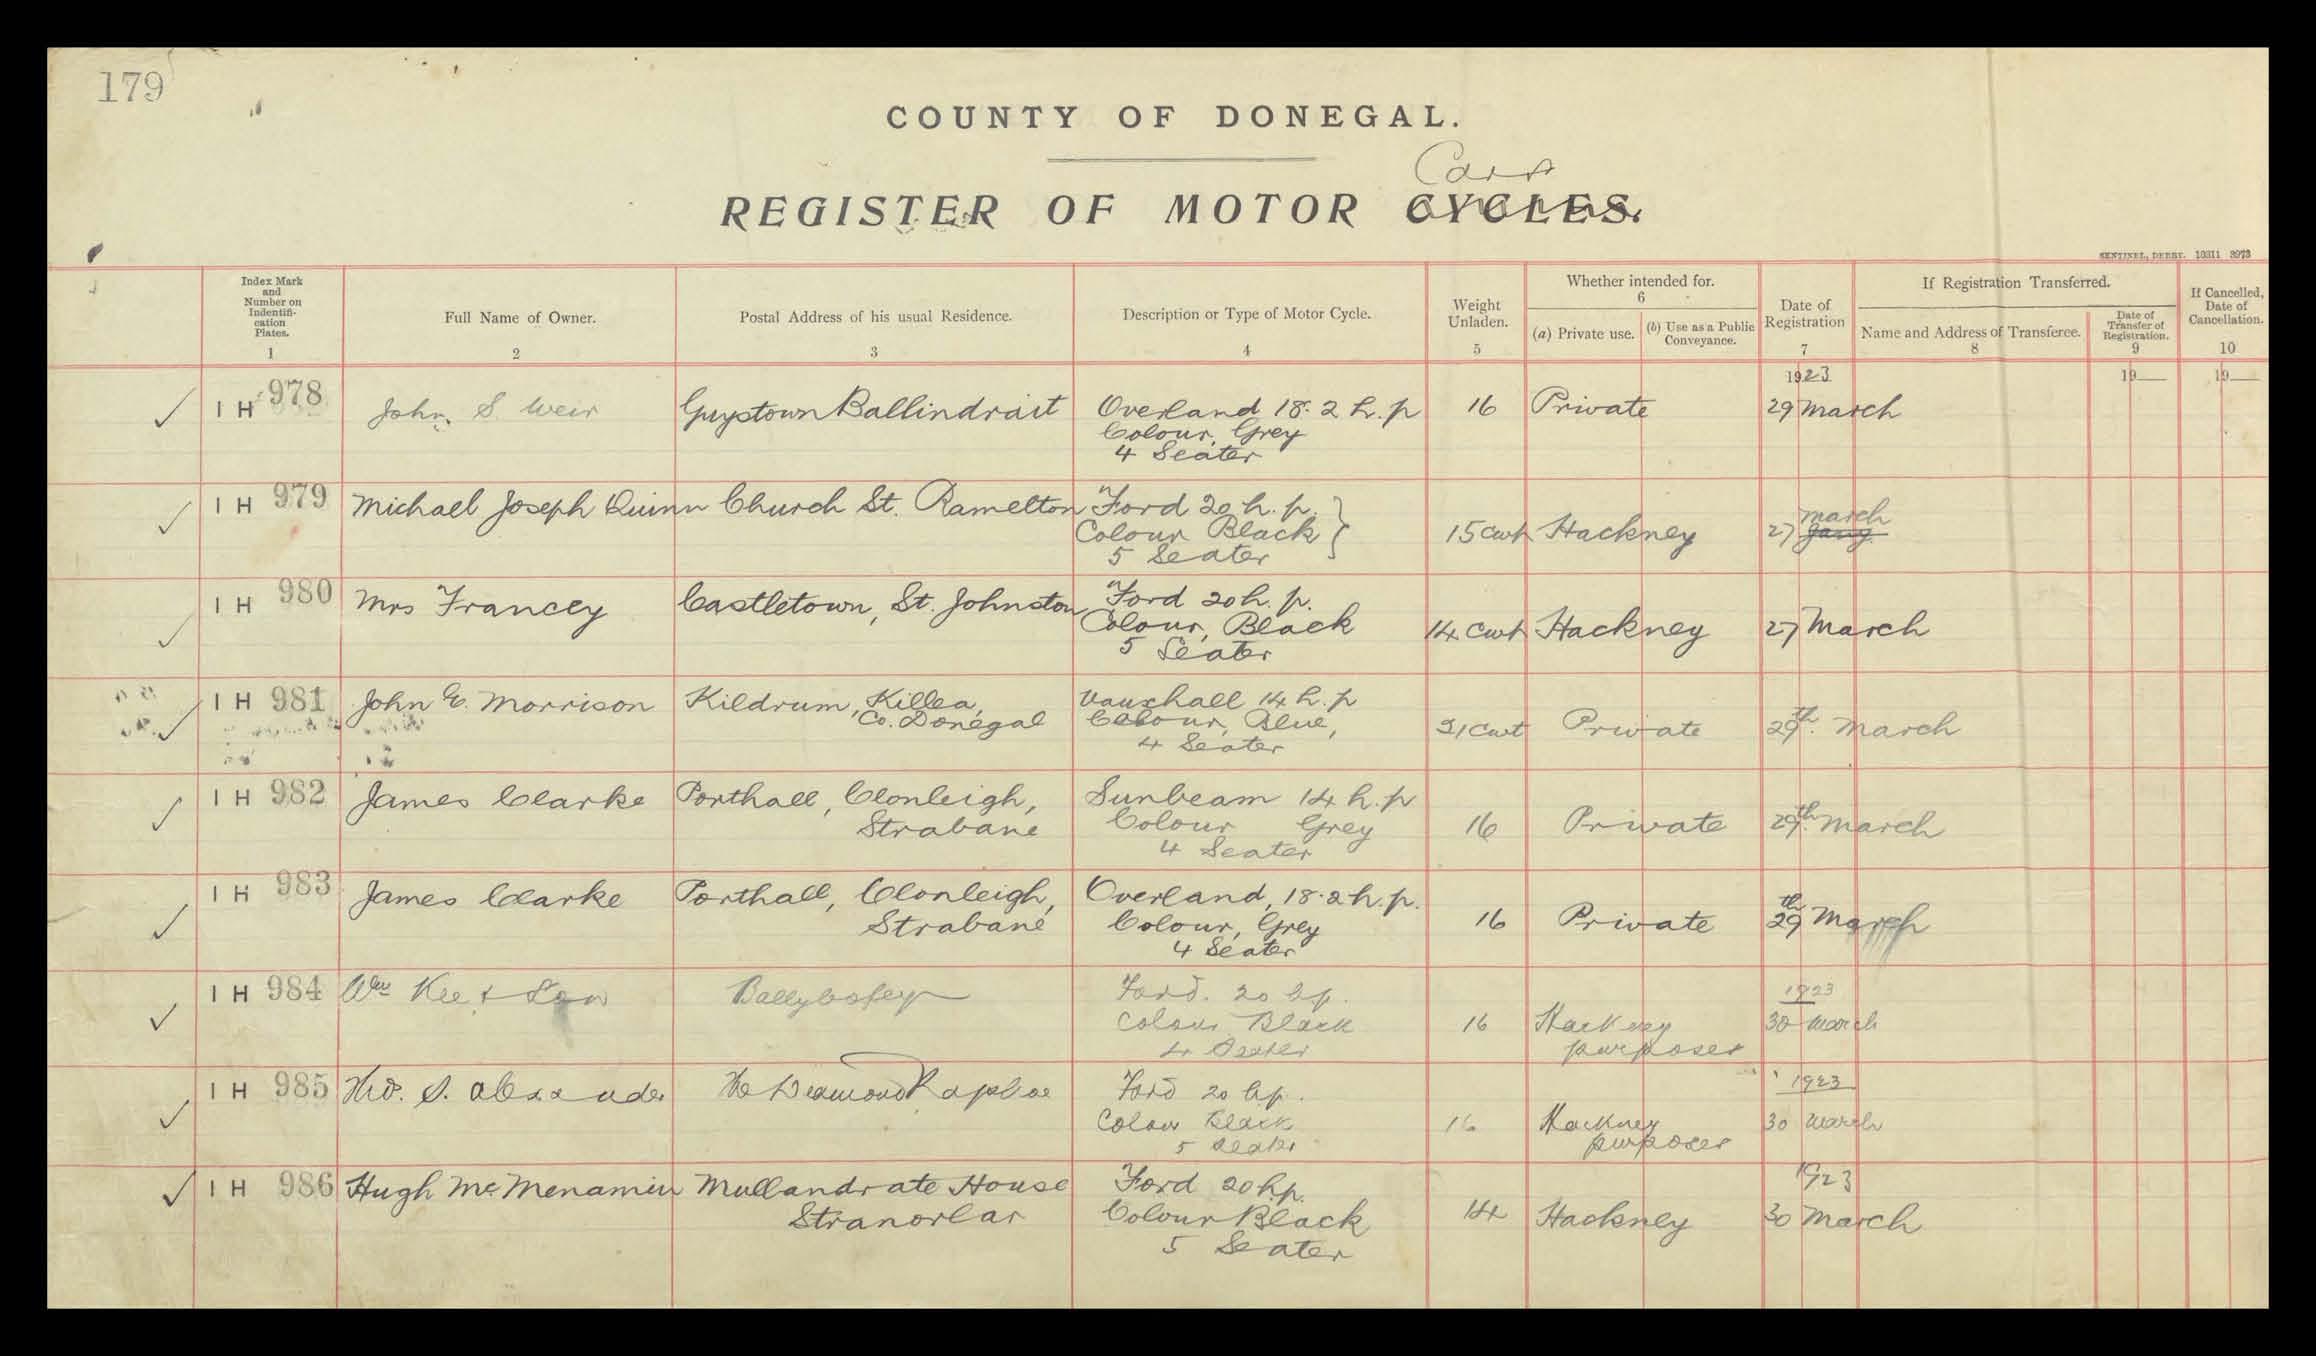 179
COUNTY OF DONEGAL.
Cars
REGISTER OF MOTOR CYCLES.
SENTINEL, DERRY. 10311 3973
Index Mark
and
Number on
Indentifi-
cation
Plates.
1
Full Name of Owner.
2
Postal Address of his usual Residence.
3
Description or Type of Motor Cycle.
4
Weight
Unladen.
5
Whether intended for.
6
(a) Private use.
(b) Use as a Public
Conveyance.
Date of
Registration
7
If Registration Transferred.
Name and Address of Transferee.
8
Date of
Transfer of
Registration.
9
If Cancelled,
Date of
Cancellation.
10
1923
19
19
I H 978 John S. Weir Guystown Ballindrait Overland 18.2 h.p 16 Private 29 March
Colour, Grey
4 Seater
I H 979 Michael Joseph Quinn Church St. Ramelton Ford 20 h.p.
March
Colour Black 15 cwt Hackney 27
5 Seater
I H 980 Mrs Francey Castletown, St. Johnston Ford 20 h.p.
Colour, Black 14 cwt Hackney 27 March
5 Seater
I H 981 John E. Morrison Kildrum, Killea, Vauxhall 14 h.p
Co. Donegal Colour, Blue, 21 cwt Private 29th. March
4 Seater
I H 982 James Clarke Porthall, Clonleigh, Sunbeam 14 h.p
Strabane Colour Grey 16 Private 29th. March
4 Seater
I H 983 James Clarke Porthall, Clonleigh, Overland, 18.2 h.p.
Strabane Colour, Grey 16 Private 29th March
4 Seater
I H 984 Wm Kee & Son Ballybofey Ford. 20 hp. 1923
Colour Black 16 Hackney 30 March
4 Seater purposes
I H 985 Thos. S. Alexander The Diamond Raphoe Ford 20 hp. 1923
Colour Black 16 Hackney 30 March
5 Seater purposes
I H 986 Hugh McMenamin Mullandrate House Ford 20 h.p. 1923
Stranorlar Colour Black 14 Hackney 30 March
5 Seater